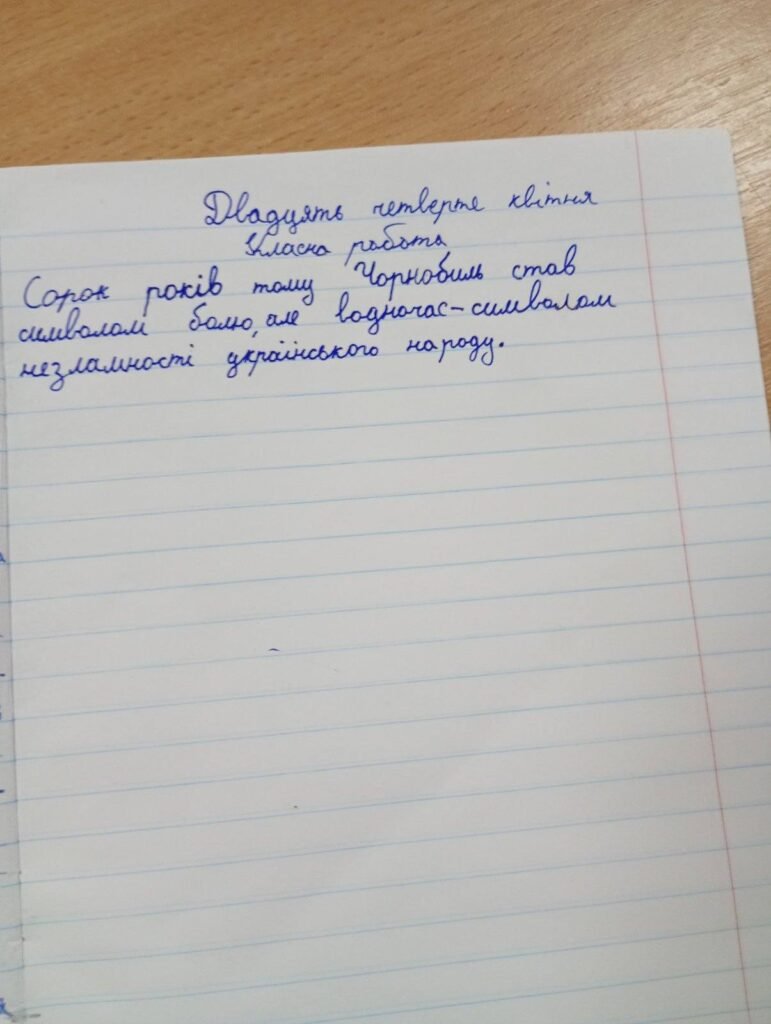 Двадцять четверте квітня
Класна робота
Сорок років тому Чорнобиль став
символом болю, але водночас - символом
незламності українського народу.